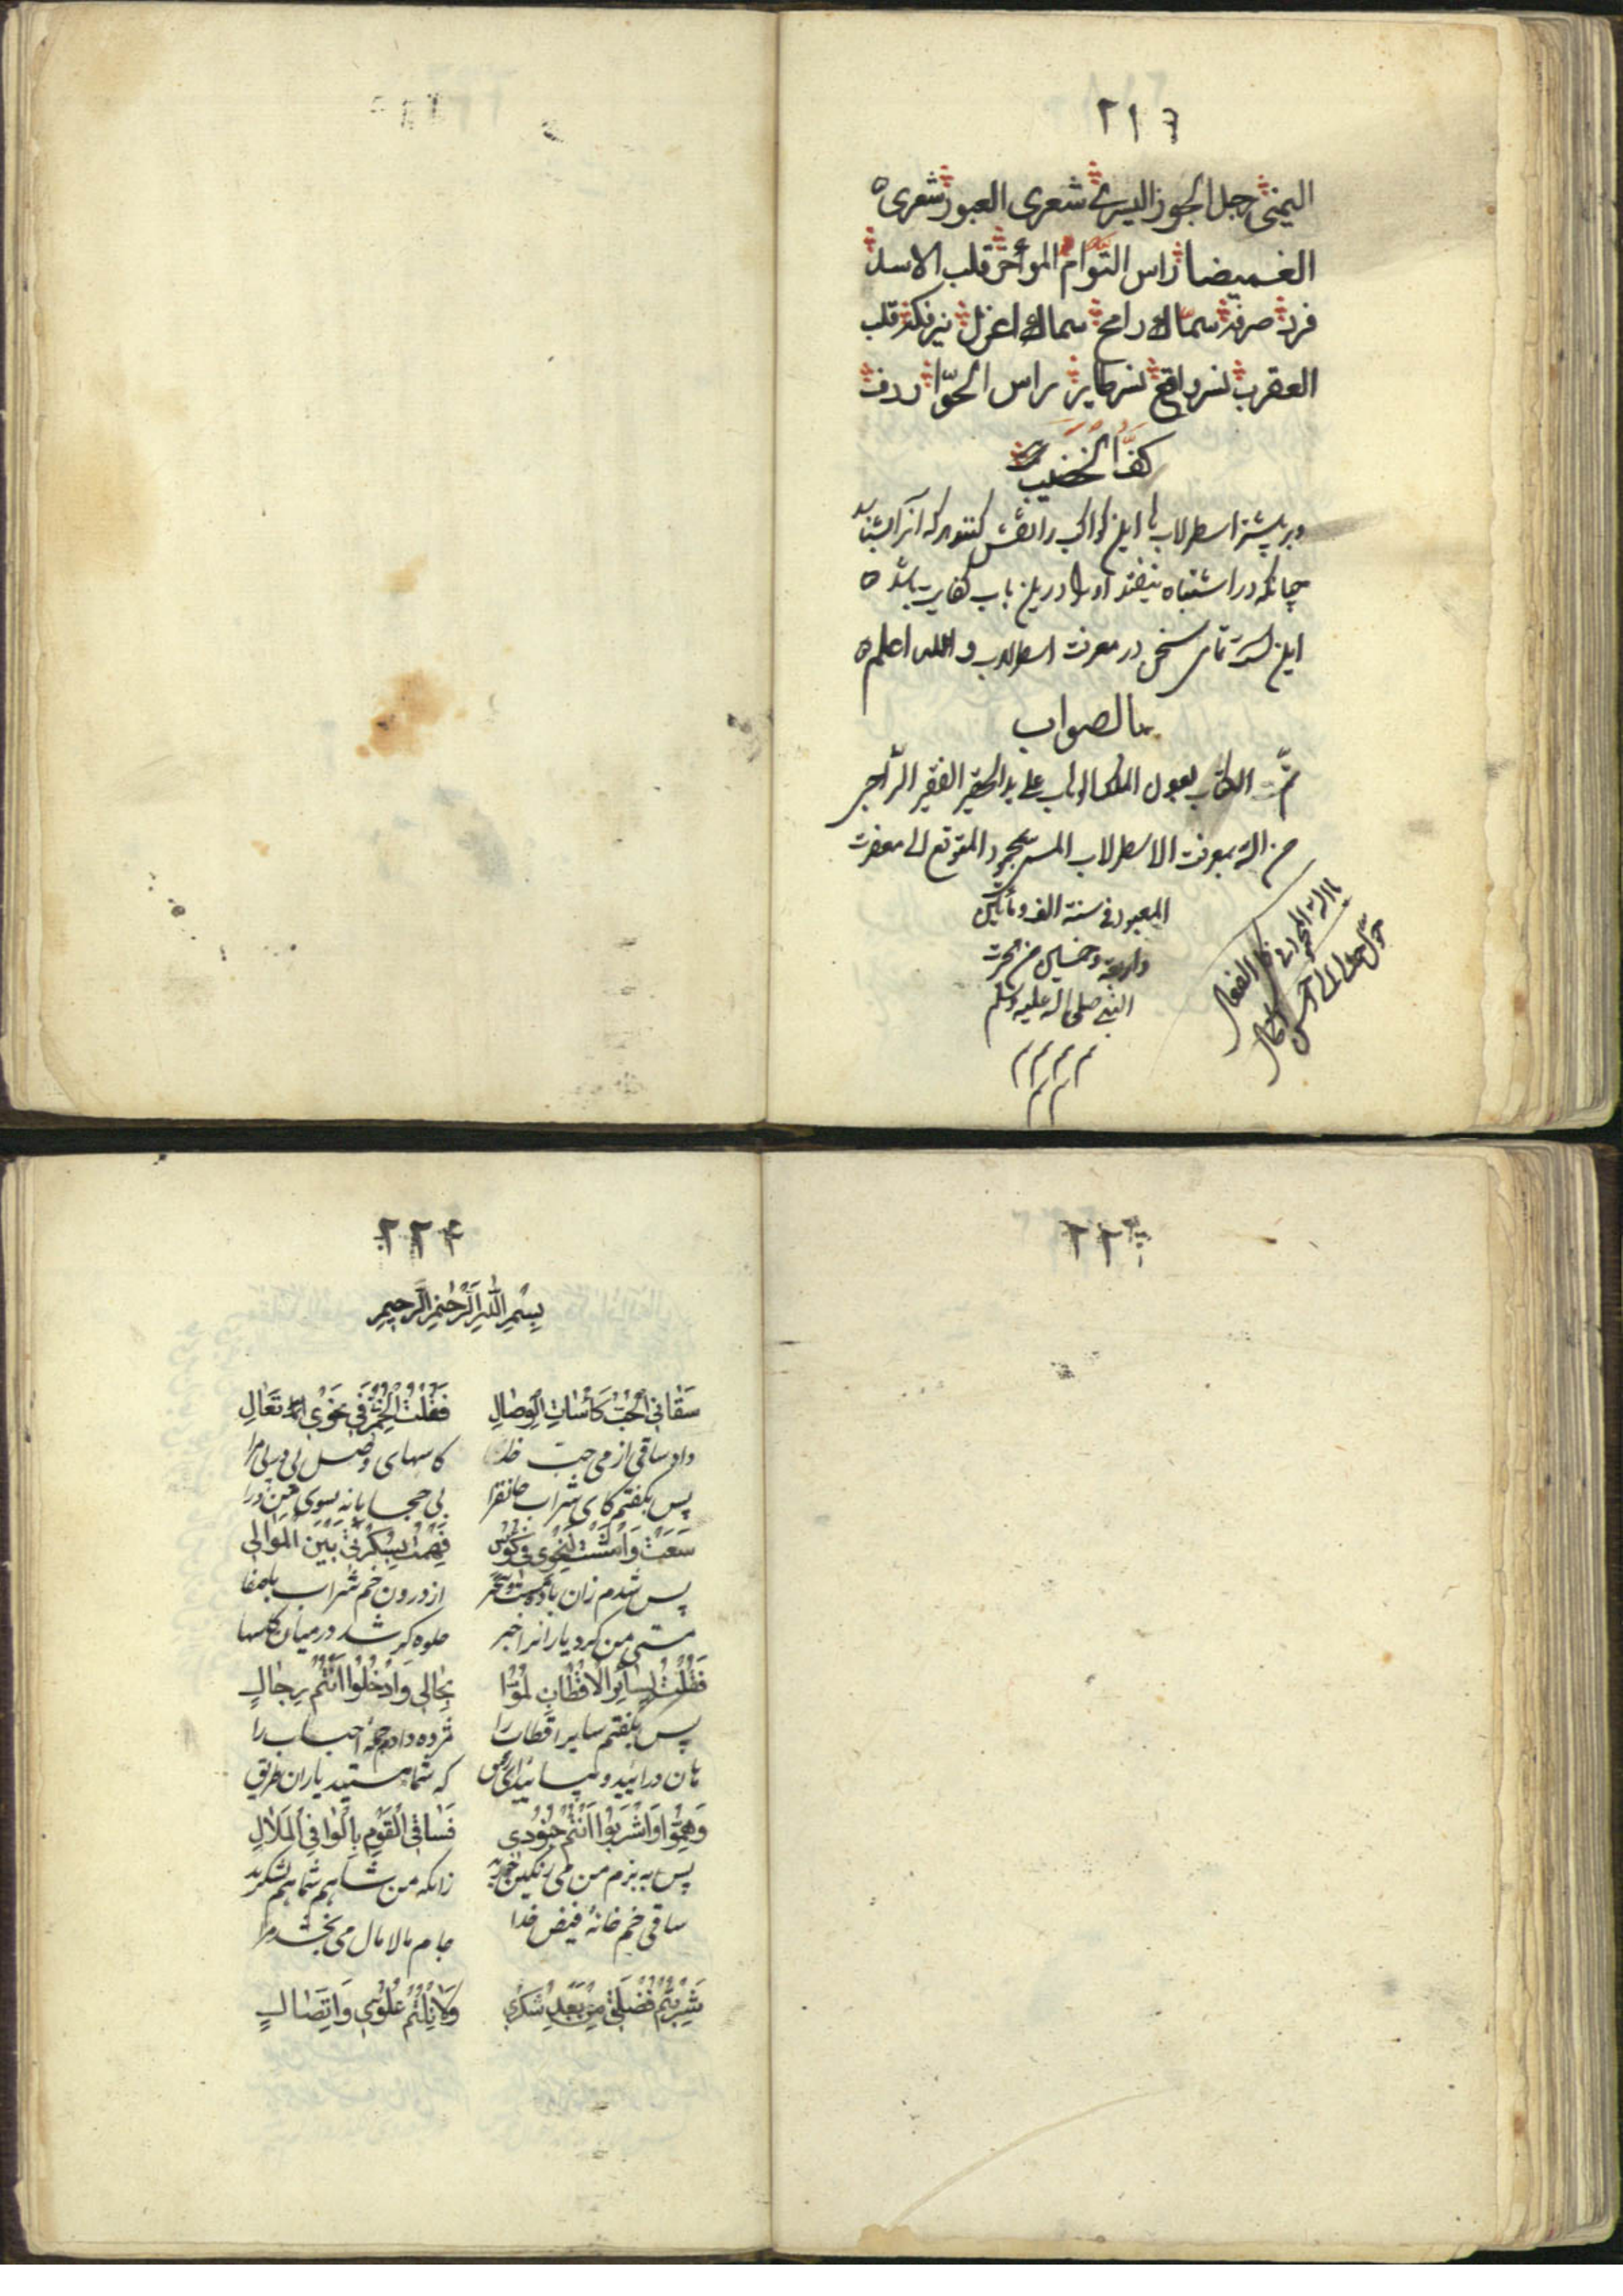 ٢١٦
اليمنى رجل الجوز اليسرى شعرى العبور شعرى
الغميضا راس التوام المؤخر قلب الاسد
فرد صرفه سماك رامح سماك اعزل نير فكه قلب
العقرب نسر واقع نسر طاير راس الحوّا ردف
كف الخضيب
و بر پشتر اسطرلاب ها این کواکب را نقش کنند هر که آنرا بشناسد
چنانکه در اشتباه نیفتد او را درین باب کفایت باشد
این است تمامی سخن در معرفت اسطرلاب و الله اعلم
بالصواب
تمت الكتاب بعون الملك الوهاب على يد الحقير الفقير الراجى
من الله بمعرفت الاسطرلاب المتوقع الى مغفرت
المعبود فى سنة الف و مأتين
واربعة وخمسين من هجرت
النبى صلى الله عليه وسلم
حوّل حالنا الى احسن الحال
٢٢٣
٢٢٤
بِسْمِ اللهِ الرَّحْمٰنِ الرَّحِيمِ
سَقَانِي الْحُبُّ كَأْسَاتِ الْوِصَالِ فَقُلْتُ لِخَمْرَتِي نَحْوِي تَعَالِ
داد ساقی از می حب خدا کاسهای وصل مرا
پس بگفتم کای شراب جانفزا بی حجابانه بسوی من درا
سَعَتْ وَمَشَتْ لِنَحْوِي فِي كُؤُسٍ فَهِمْتُ بِسُكْرَتِي بَيْنَ الْمَوَالِي
پس شدم زان باده از درون خم شراب باصفا
مستی من کرد یارانرا خبر جلوه گر شد در میان کاسها
فَقُلْتُ لِسَائِرِ الْاَقْطَابِ لُمُّوْا بِحَالِي وَادْخُلُوْا اَنْتُمْ رِجَالِ
پس بگفتم سایر اقطاب را مژده دادم جمله احباب را
هان درائید و بیائید ای رفیق که شما هستید یاران طریق
وَهُمُّوْا وَاشْرَبُوْا اَنْتُمْ جُنُوْدِي فَسَاقِي الْقَوْمِ بِالْوَافِي الْمَلَالِ
پس به بزم من می رنگین خورید زانکه من شاهم شما هم لشکرید
ساقی خم خانهٔ فیض خدا جام مالامال می بخشد مرا
شَرِبْتُمْ فُضْلَتِي مِنْ بَعْدِ سُكْرِي وَلَا نِلْتُمْ عُلُوِّي وَاتِّصَالِ